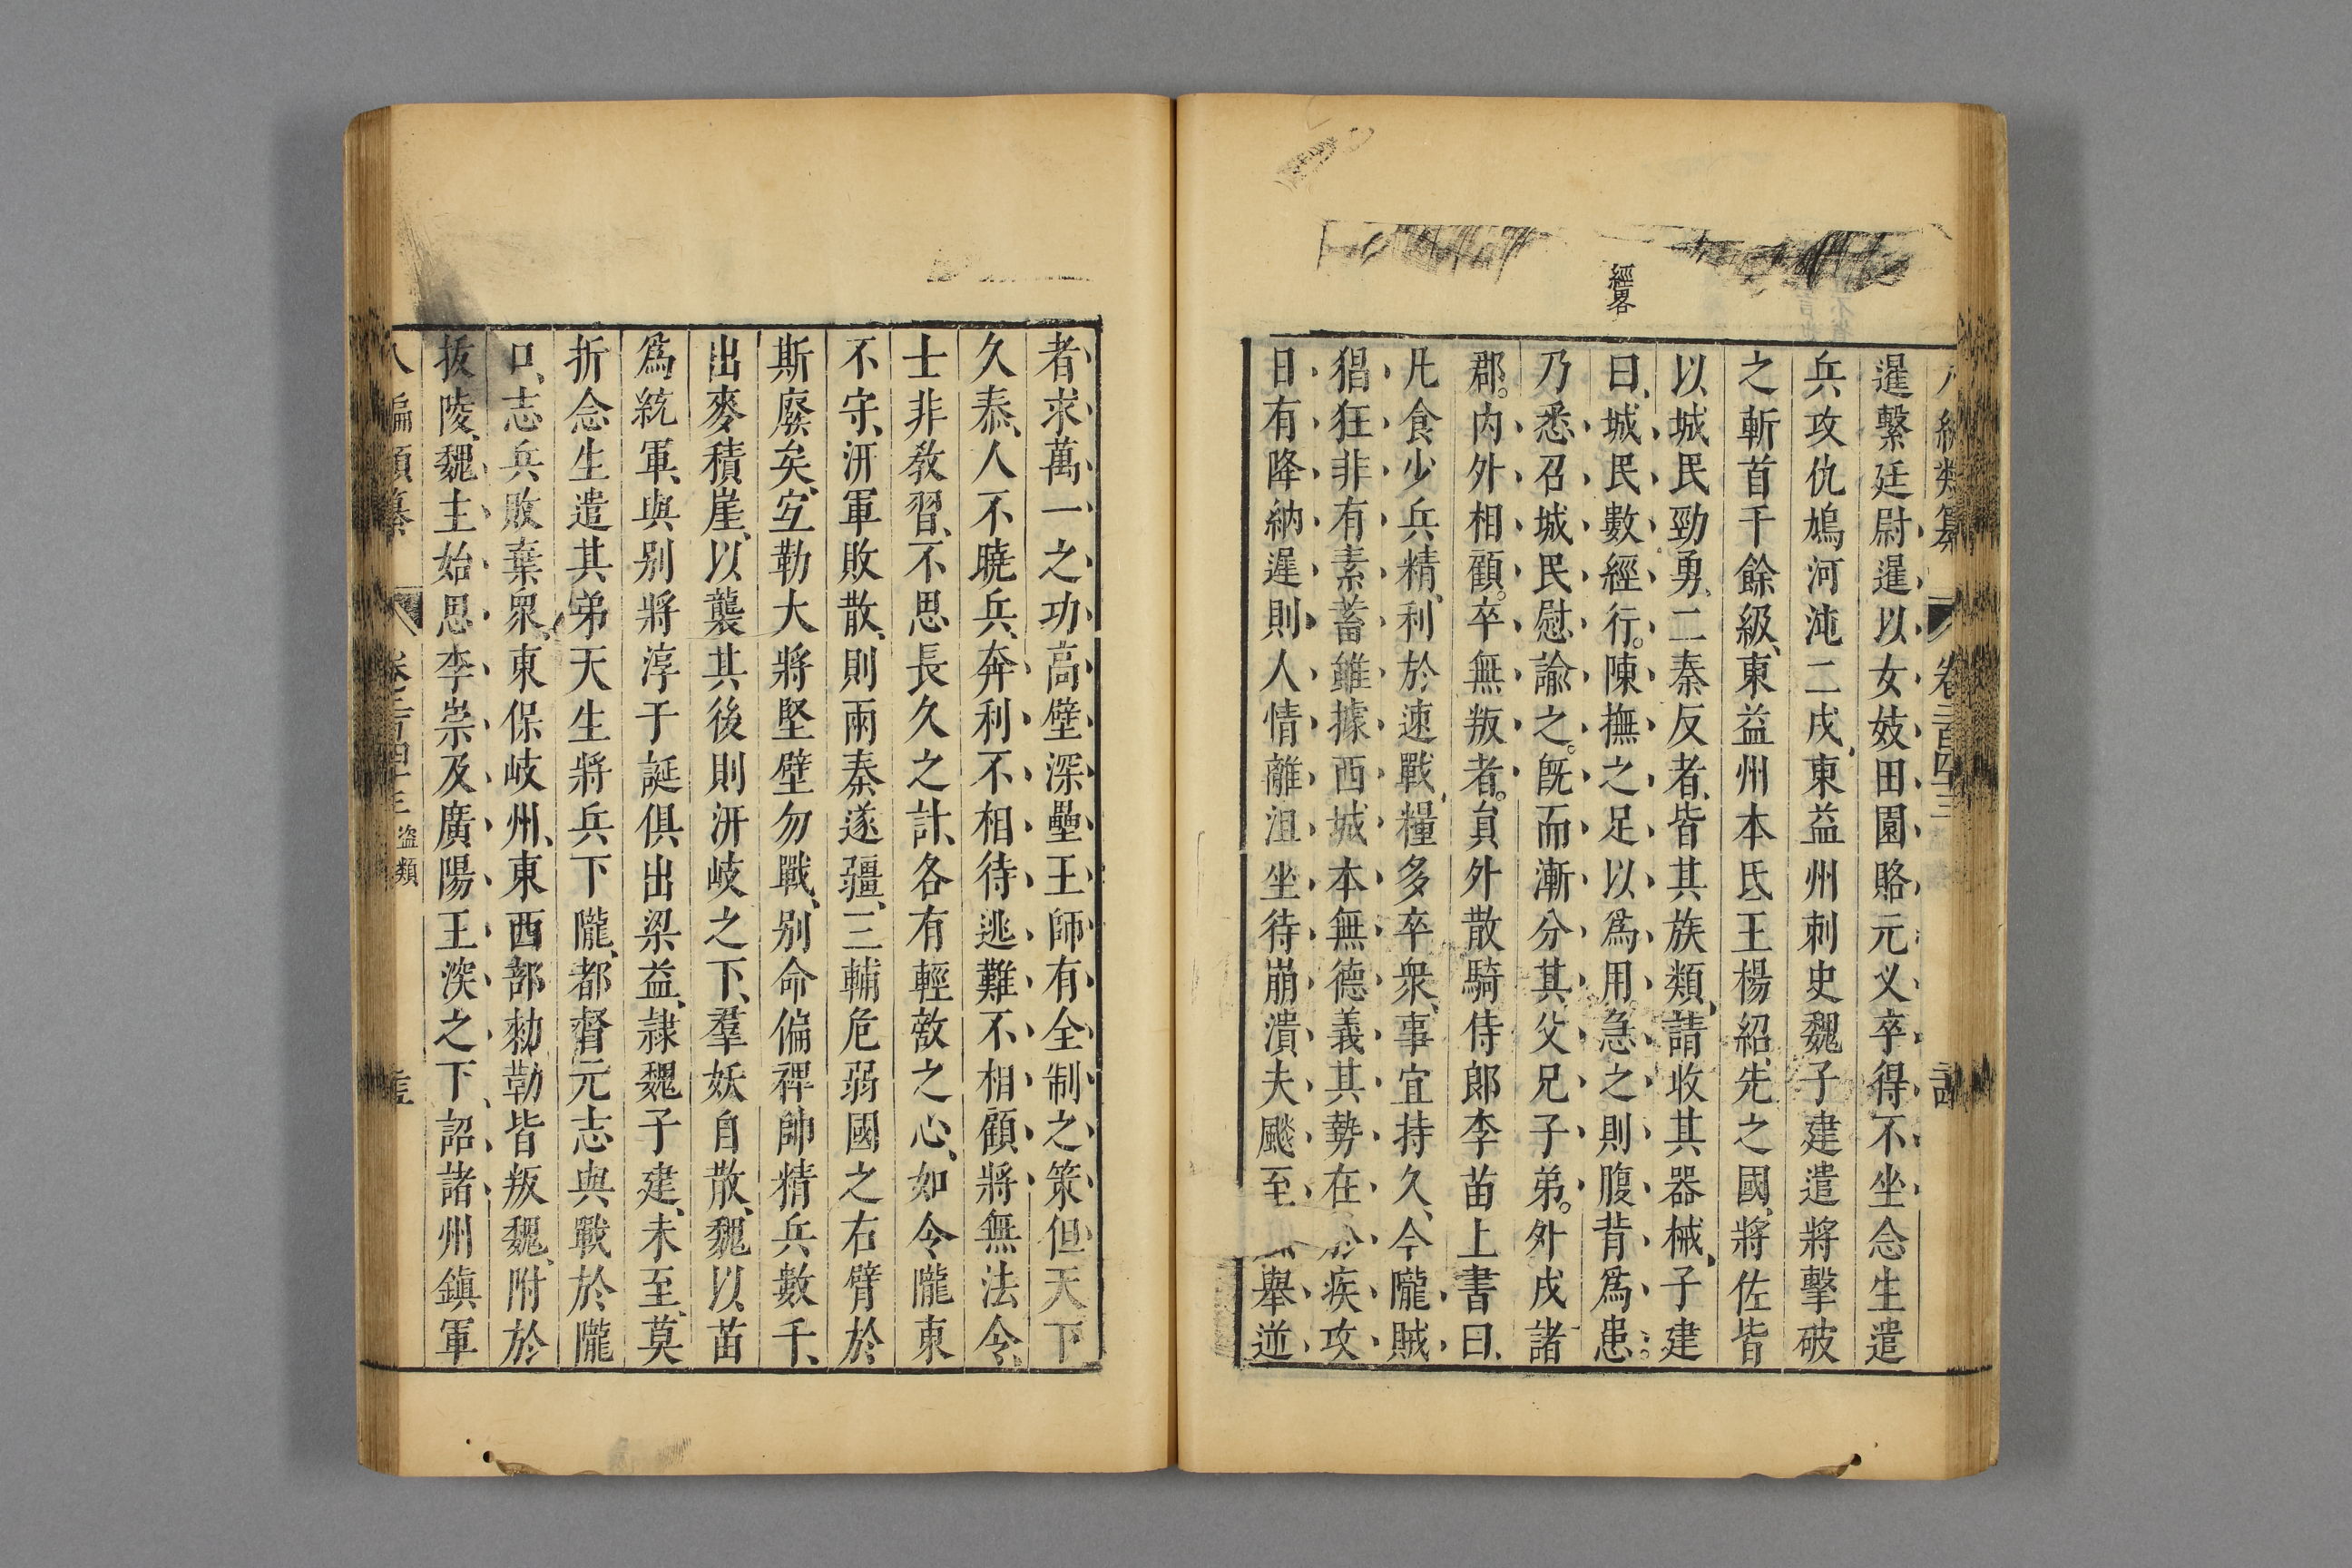 經畧
暹繫廷尉暹以女妓田園賂元乂卒得不坐念生遣
兵攻仇鳩河沌二戍東益州刺史魏子建遣將擊破
之斬首千餘級、東益州本氐王楊紹先之國、將佐皆
以城民勁勇、二秦反者、皆其族類、請收其器械、子建
曰、城民數經行。陳撫之足以爲用。急之則腹背爲患。
乃悉召城民慰諭之。旣而漸分其父兄子弟。外戍諸
郡。內外相顧。卒無叛者。員外散騎侍郎李苗上書曰、
凡食少兵精、利於速戰、糧多卒衆、事宜持久、今隴賊
猖狂非有素蓄雖據西城本無德義其勢在於疾攻
日有降納遲則人情離沮坐待崩潰夫飈至舉逆
卷二百四十三
者求萬一之功高壁深壘王師有全制之策但天下
久泰、人不曉兵、奔利不相待逃難不相顧將無法令、
士非敎習、不思長久之計、各有輕敵之心、如令隴東
不守、汧軍敗散、則兩秦遂彊、三輔危弱國之右臂於
斯廢矣、宜勒大將堅壁勿戰、別命偏裨帥精兵數千、
出麥積崖、以襲其後則汧岐之下、羣妖自散、魏以苗
爲統軍、與別將淳于誕俱出梁益、隷魏子建、未至、莫
折念生遣其弟天生將兵下隴、都督元志與戰於隴
口、志兵敗棄衆、東保岐州、東西部敕勒皆叛魏、附於
拔陵、魏主始思李崇及廣陽王深之下、詔諸州鎭軍
八編類纂 卷二百四十三 盜類